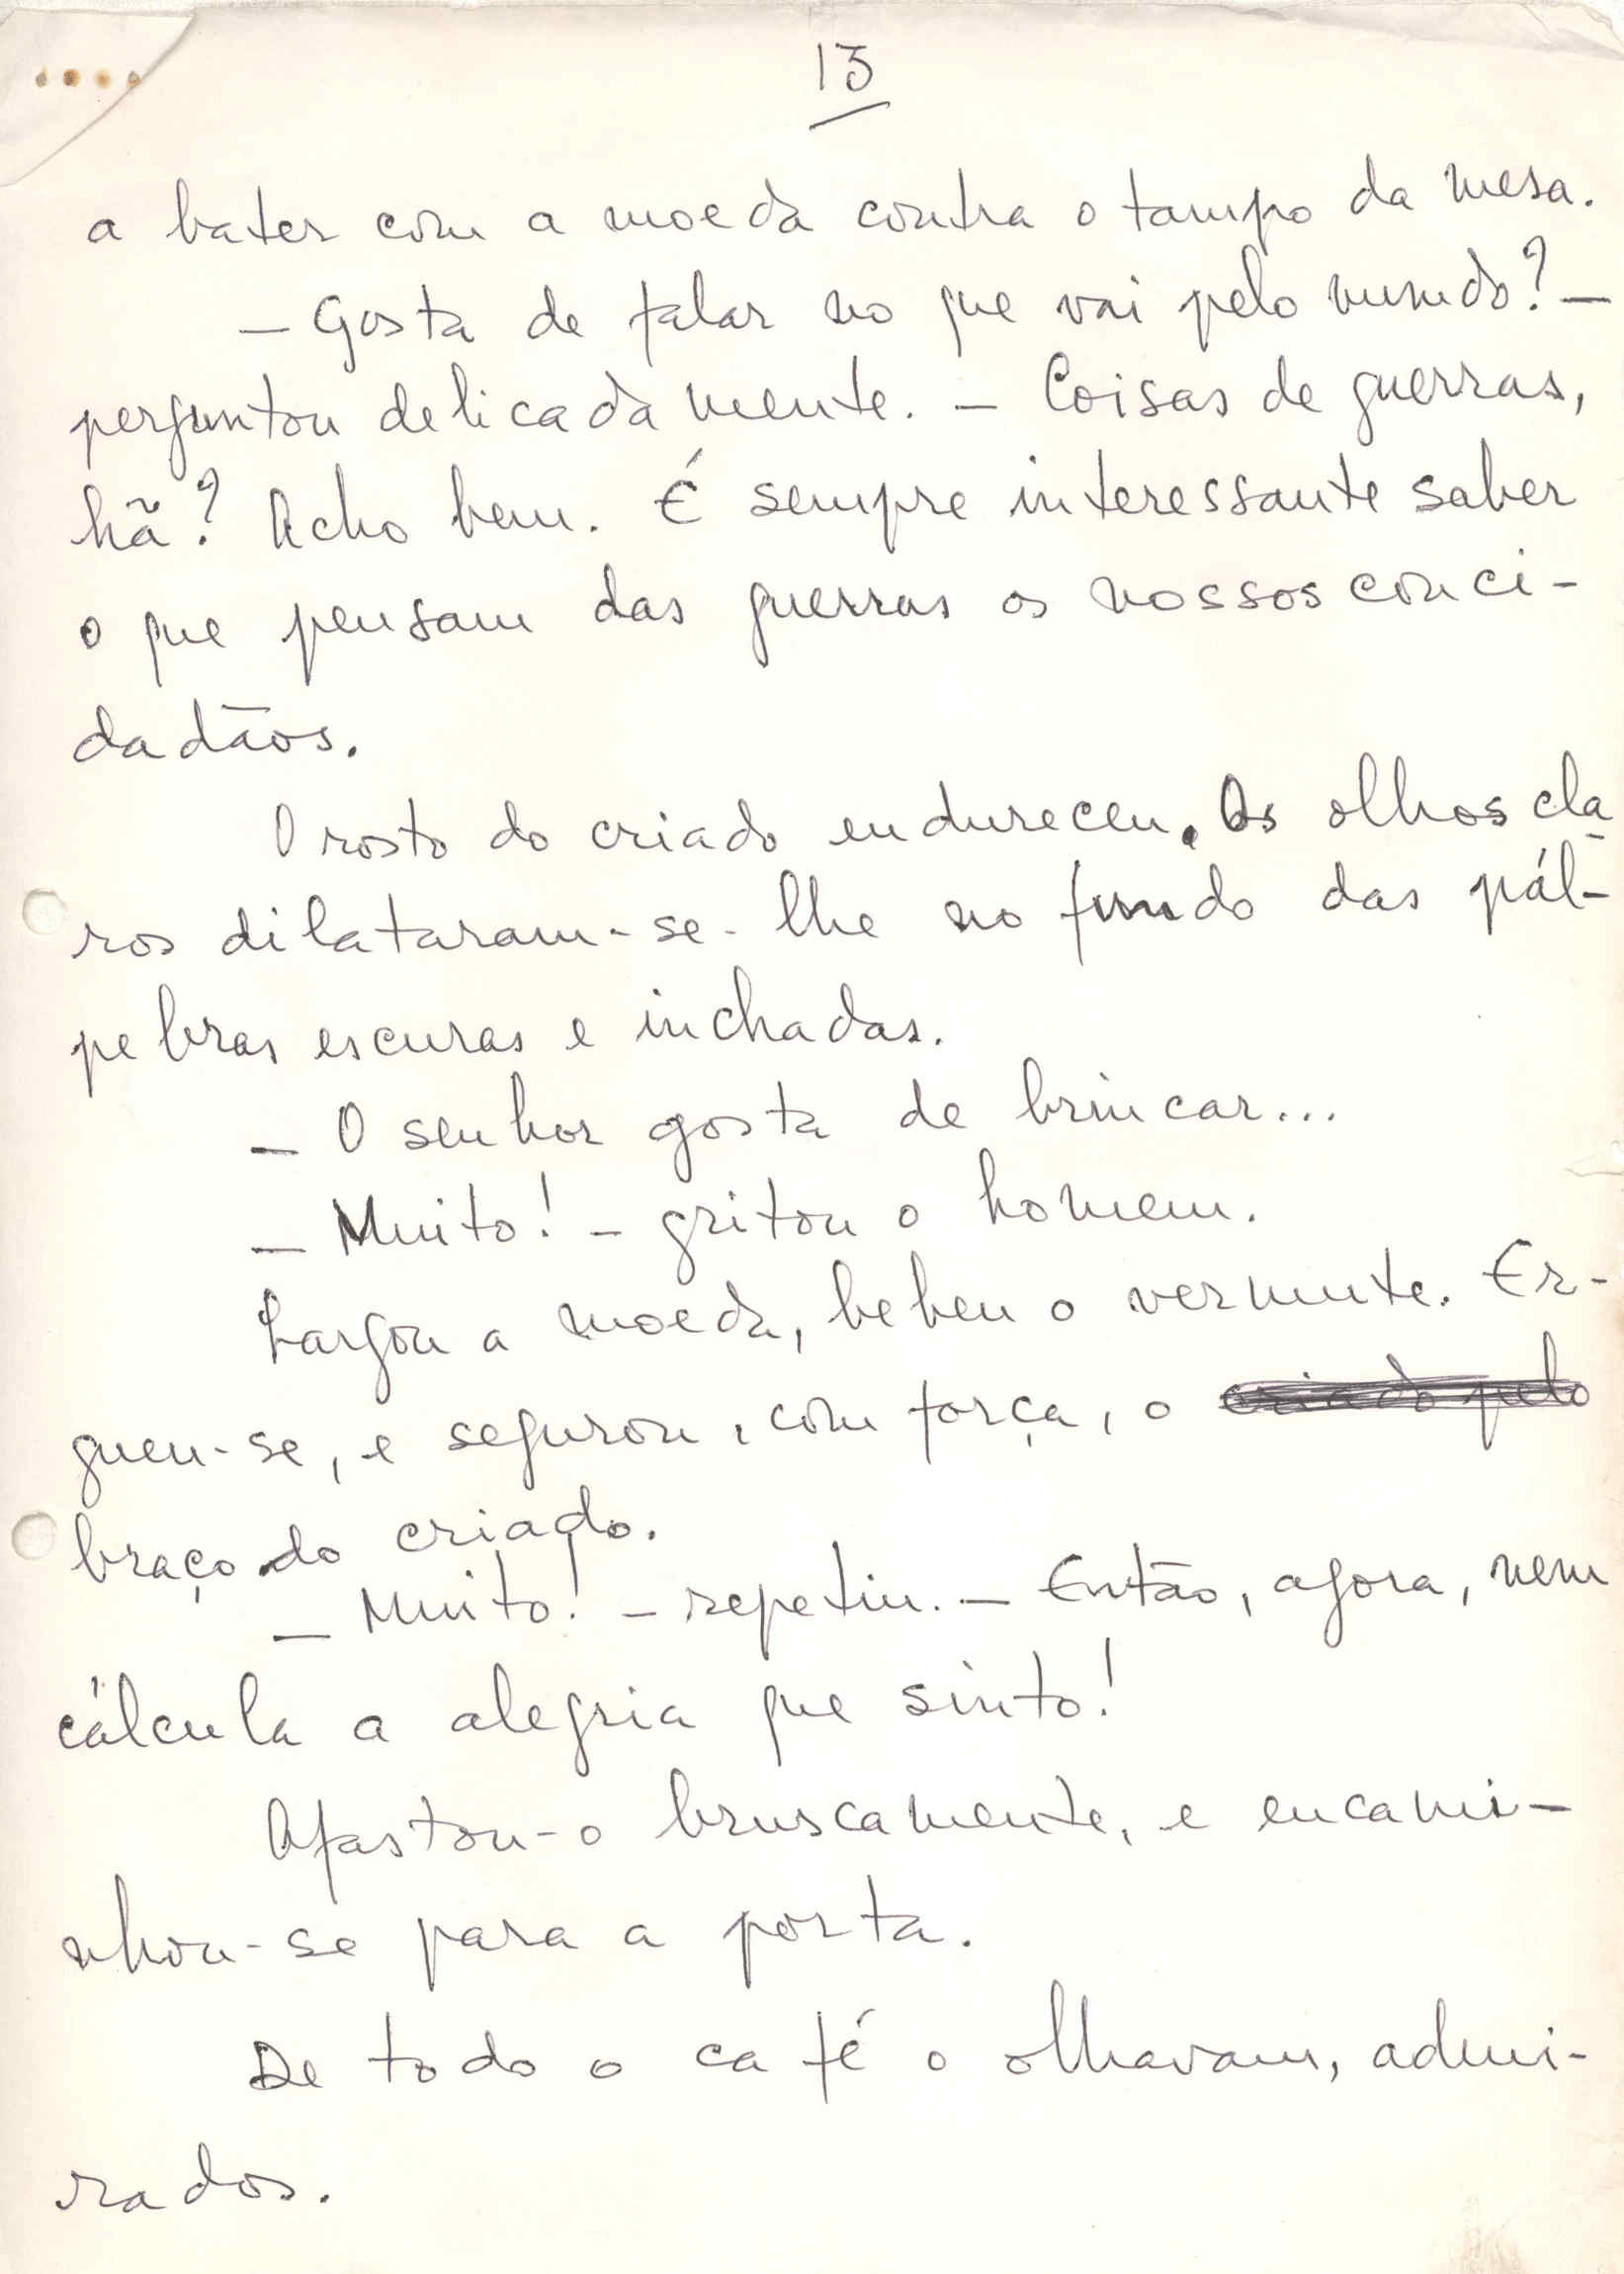 13
a bater com a moeda contra o tampo da mesa.
— Gosta de falar no que vai pelo mundo? —
perguntou delicadamente. — Coisas de guerras,
hã? Acho bem. É sempre interessante saber
o que pensam das guerras os nossos conci-
dadãos.
O rosto do criado endureceu. Os olhos cla-
ros dilataram-se-lhe no fundo das pál-
pebras escuras e inchadas.
— O senhor gosta de brincar...
— Muito! — gritou o homem.
Largou a moeda, bebeu o vermute. Er-
gueu-se, e segurou, com força, o criado pelo
braço do criado.
— Muito! — repetiu. — Então, agora, nem
cálcula a alegria que sinto!
Afastou-o bruscamente, e encami-
nhou-se para a porta.
De todo o café o olhavam, admi-
rados.